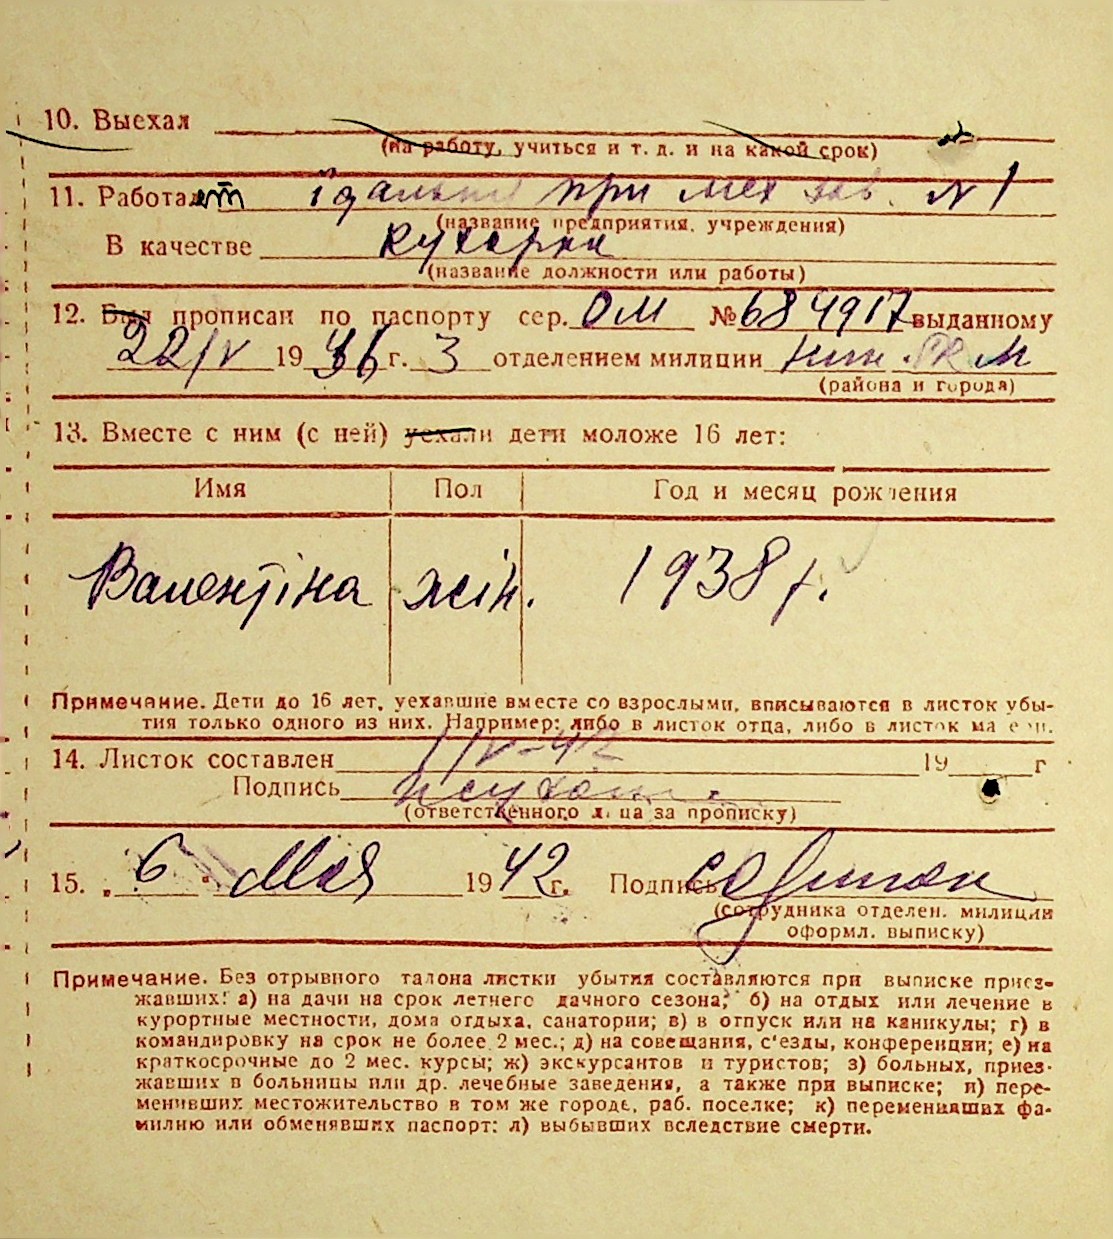 10. Выехал
(на работу, учиться и т. д. и на какой срок)
11. Работа їдальні при мех зав. № 1
(название предприятия, учреждения)
В качестве кухарки
(название должности или работы)
12. Был прописан по паспорту сер. ОМ № 684917 выданному
22/IV 1936 г. 3 отделением милиции
(района и города)
13. Вместе с ним (с ней) уехали дети моложе 16 лет:
Имя Пол Год и месяц рождения
Валентіна жін. 1938 г.
Примечание. Дети до 16 лет, уехавшие вместе со взрослыми, вписываются в листок убы-
тия только одного из них. Например: либо в листок отца, либо в листок матери.
14. Листок составлен 1/V-42 19 г
Подпись
(ответственного лица за прописку)
15. „6" Мая 1942 г. Подпись
(сотрудника отделен. милиции
оформл. выписку)
Примечание. Без отрывного талона листки убытия составляются при выписке приез-
жавших: а) на дачи на срок летнего дачного сезона; б) на отдых или лечение в
курортные местности, дома отдыха, санатории; в) в отпуск или на каникулы; г) в
командировку на срок не более 2 мес.; д) на совещания, с'езды, конференции; е) на
краткосрочные до 2 мес. курсы; ж) экскурсантов и туристов; з) больных, приез-
жавших в больницы или др. лечебные заведения, а также при выписке; и) пере-
менивших местожительство в том же городе, раб. поселке; к) переменивших фа-
милию или обменявших паспорт; л) выбывших вследствие смерти.